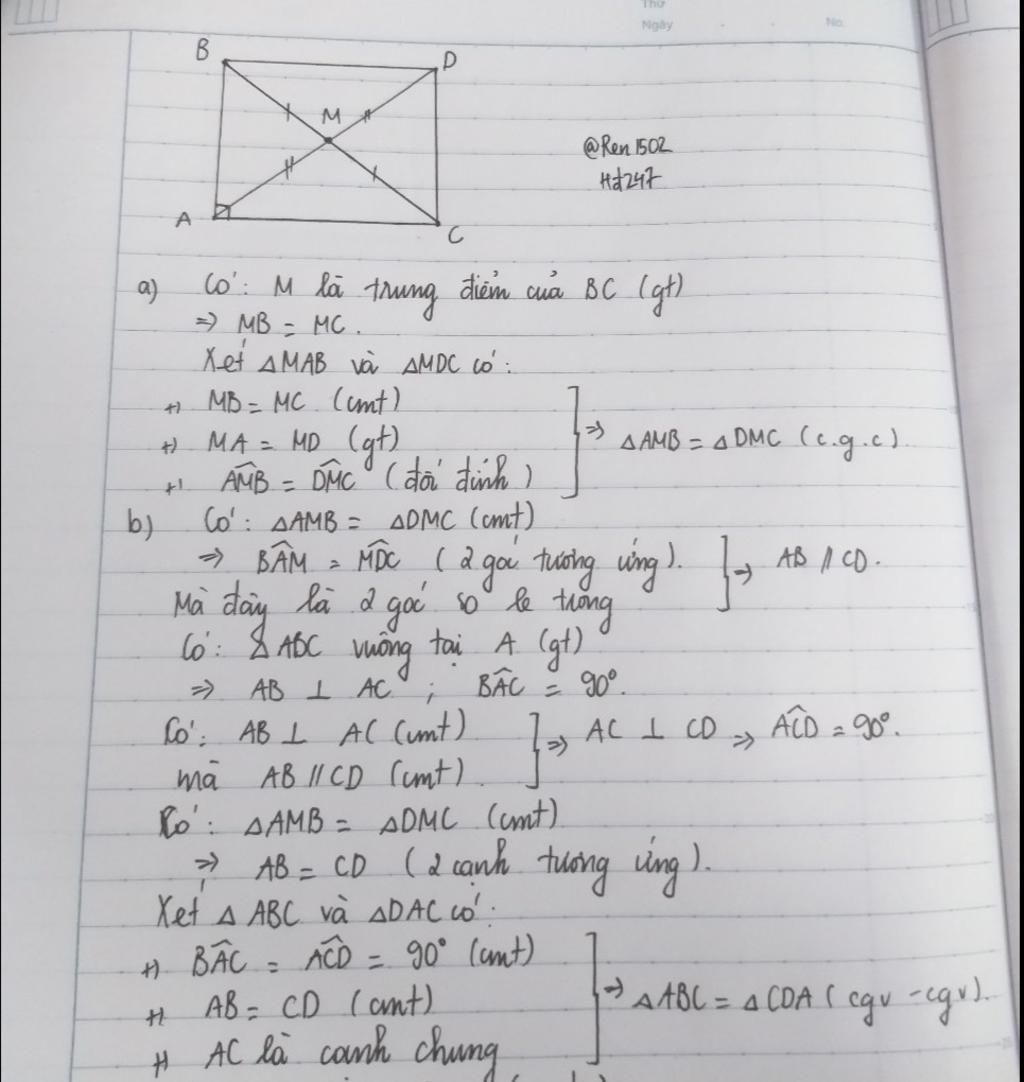 Thứ
Ngày No.
B
D
M
A
C
@Ren1502
Hđ247
a) Có: M là trung điểm của BC (gt)
=> MB = MC.
Xét △MAB và △MDC có:
+) MB = MC (cmt)
+) MA = MD (gt) => △AMB = △DMC (c.g.c)
+) AMB = DMC (đối đỉnh)
b) Có: △AMB = △DMC (cmt)
=> BAM = MDC (2 góc tương ứng). => AB // CD.
Mà đây là 2 góc so le trong
Có: △ABC vuông tại A (gt)
=> AB ⊥ AC ; BAC = 90°.
Có: AB ⊥ AC (cmt) => AC ⊥ CD => ACD = 90°.
mà AB // CD (cmt)
Có: △AMB = △DMC (cmt)
=> AB = CD (2 cạnh tương ứng).
Xét △ABC và △DAC có:
+) BAC = ACD = 90° (cmt)
+) AB = CD (cmt) => △ABC = △CDA (cgv - cgv).
+) AC là cạnh chung